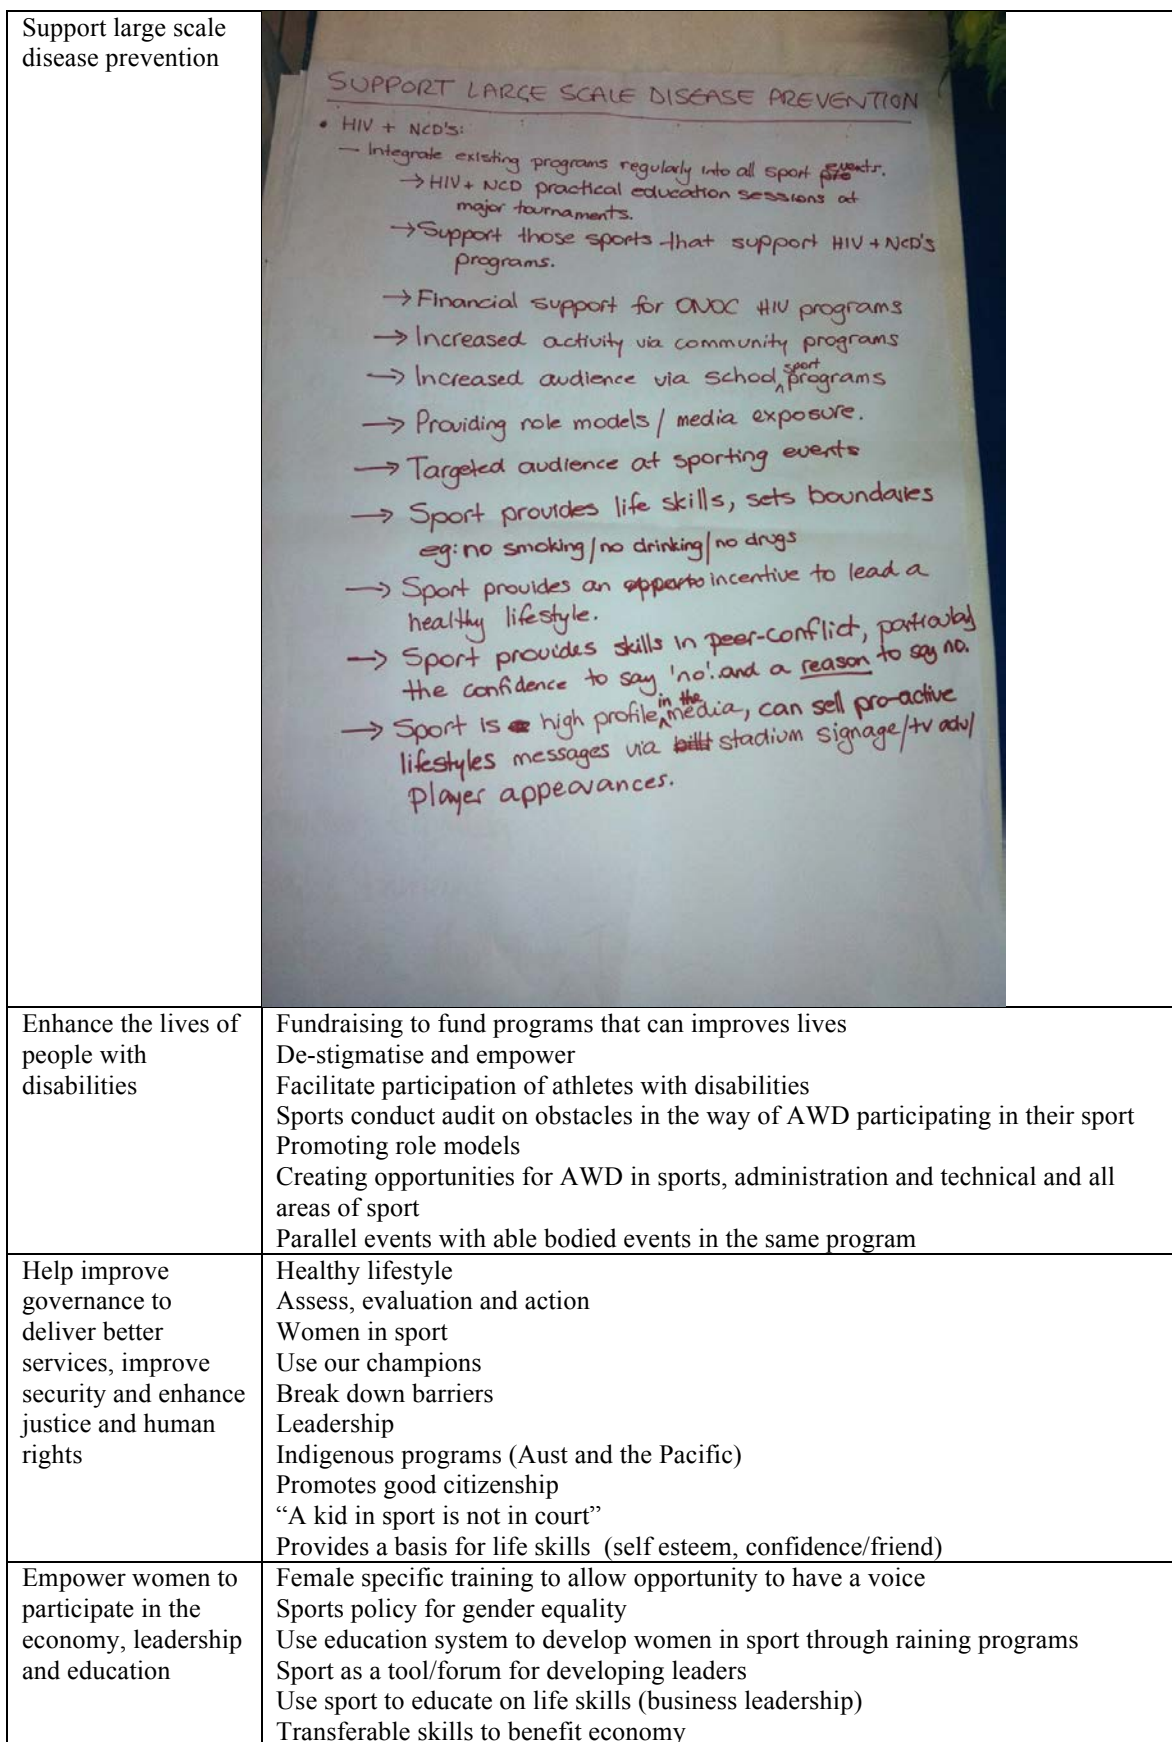 Support large scale
disease prevention
SUPPORT LARGE SCALE DISEASE PREVENTION
• HIV + NCD's:
— Integrate existing programs regularly into all sport events.
→ HIV + NCD practical education sessions at
major tournaments.
→ Support those sports that support HIV + NCD's
programs.
→ Financial support for ONOC HIV programs
→ Increased activity via community programs
→ Increased audience via school sport programs
→ Providing role models / media exposure.
→ Targeted audience at sporting events
→ Sport provides life skills, sets boundaries
eg: no smoking / no drinking / no drugs
→ Sport provides an incentive to lead a
healthy lifestyle.
→ Sport provides skills in peer-conflict, particularly
the confidence to say 'no'. and a reason to say no.
→ Sport is high profile in the media, can sell pro-active
lifestyles messages via stadium signage/tv adv/
player appearances.
Enhance the lives of
people with
disabilities
Fundraising to fund programs that can improves lives
De-stigmatise and empower
Facilitate participation of athletes with disabilities
Sports conduct audit on obstacles in the way of AWD participating in their sport
Promoting role models
Creating opportunities for AWD in sports, administration and technical and all
areas of sport
Parallel events with able bodied events in the same program
Help improve
governance to
deliver better
services, improve
security and enhance
justice and human
rights
Healthy lifestyle
Assess, evaluation and action
Women in sport
Use our champions
Break down barriers
Leadership
Indigenous programs (Aust and the Pacific)
Promotes good citizenship
“A kid in sport is not in court”
Provides a basis for life skills  (self esteem, confidence/friend)
Empower women to
participate in the
economy, leadership
and education
Female specific training to allow opportunity to have a voice
Sports policy for gender equality
Use education system to develop women in sport through raining programs
Sport as a tool/forum for developing leaders
Use sport to educate on life skills (business leadership)
Transferable skills to benefit economy